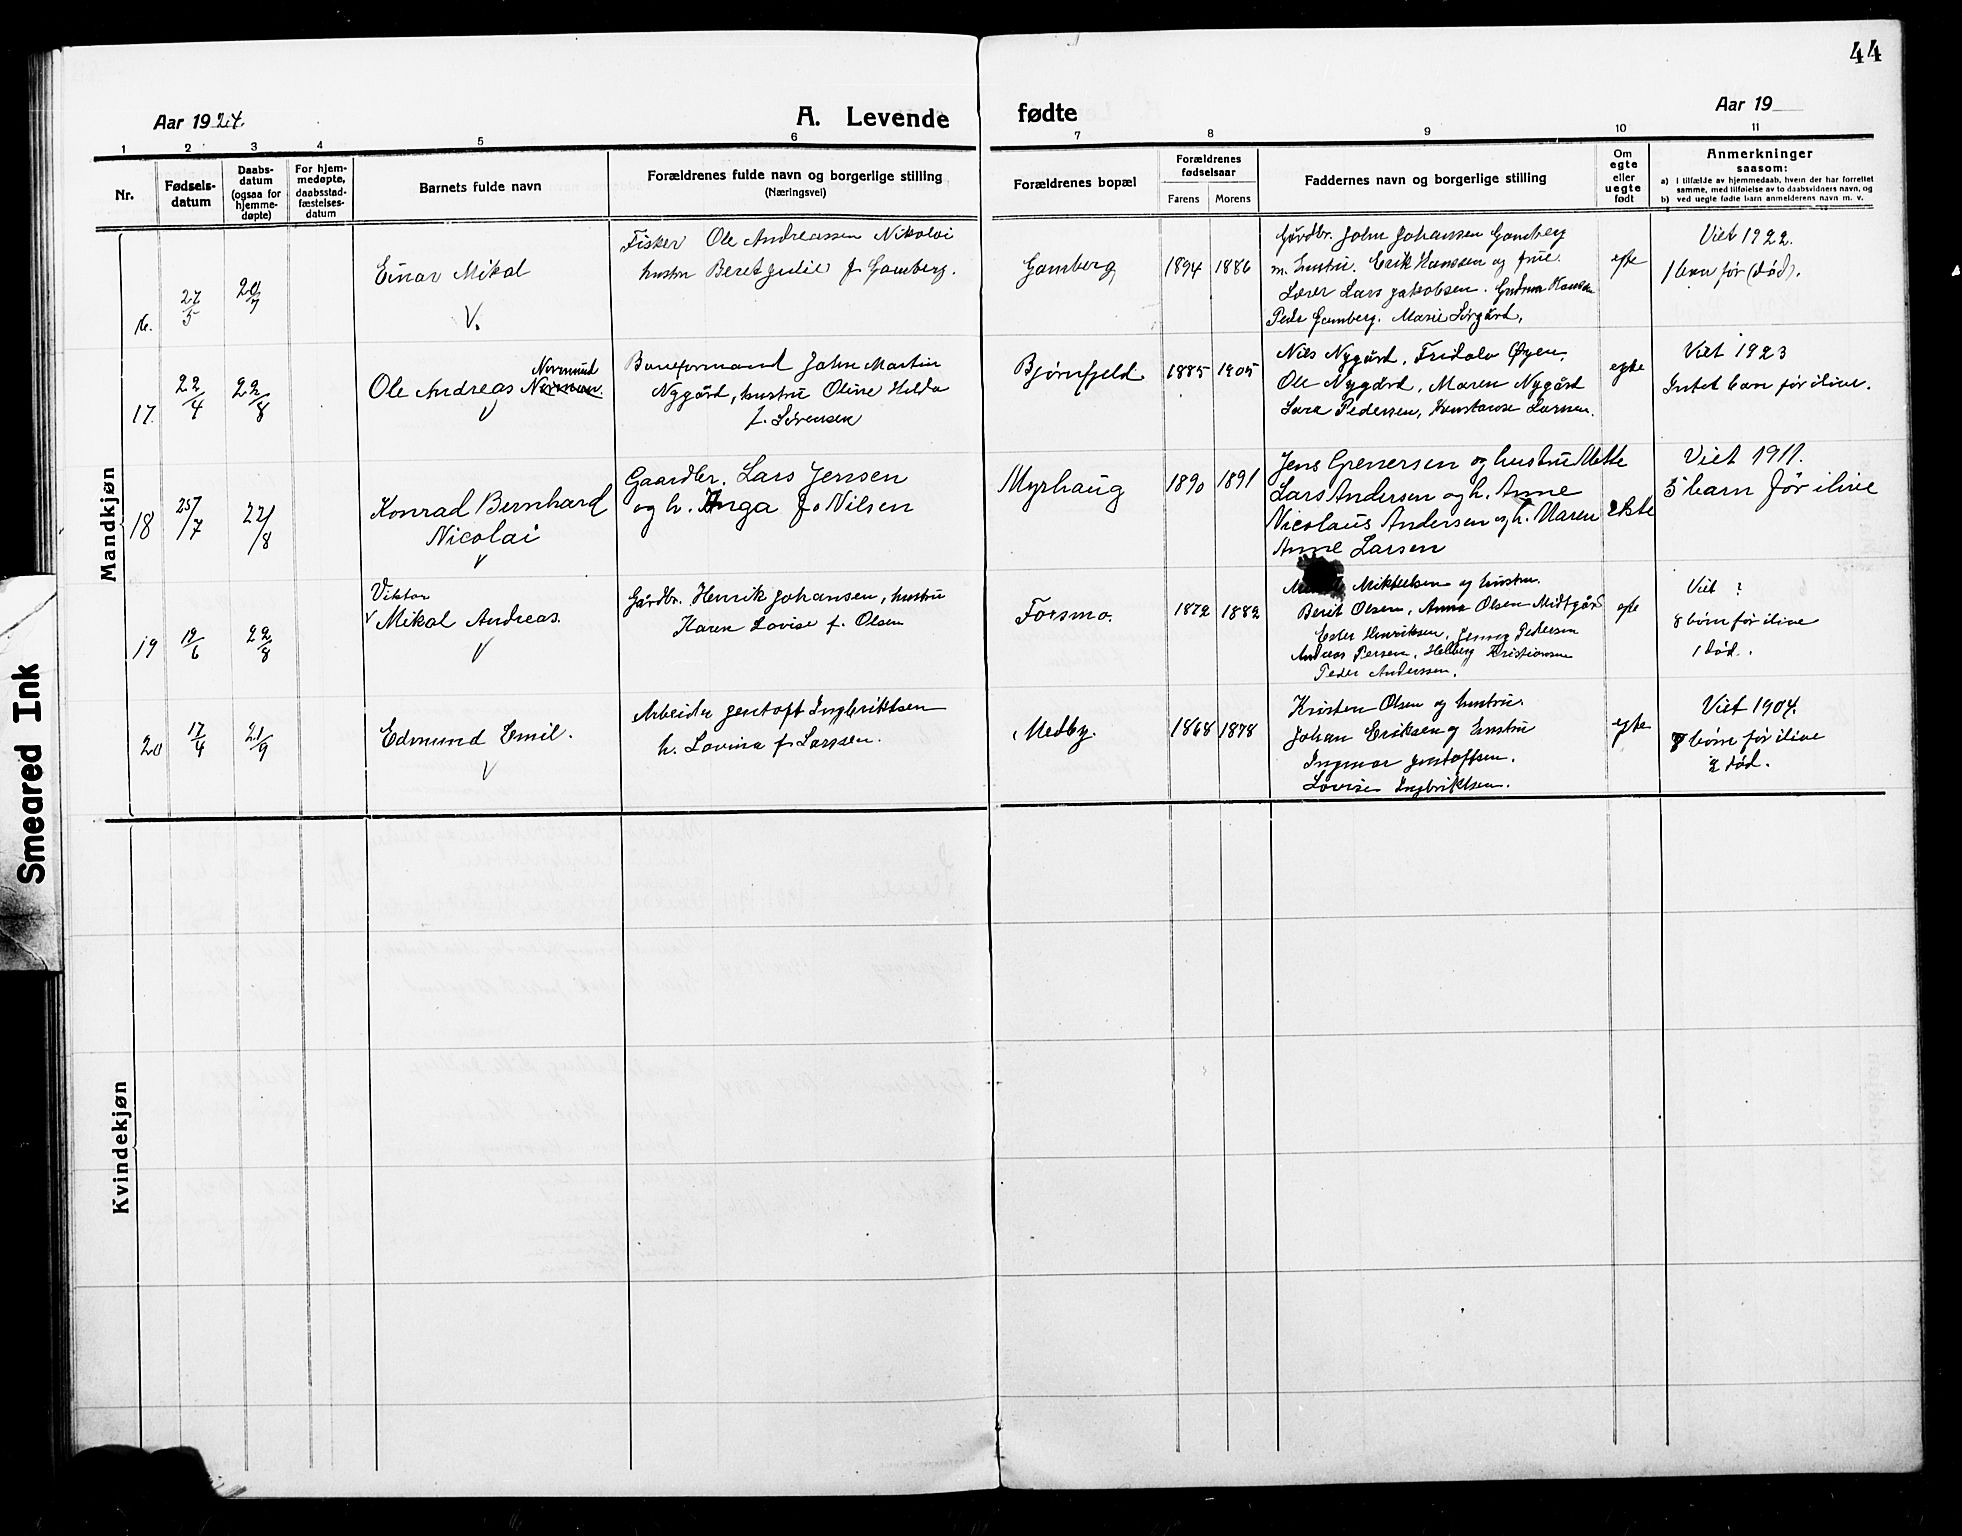 44
Aar 1924.
A. Levende fødte
Aar 19
1 2 3 4 5 6 7 8 9 10 11
Nr.
Fødsels-
datum
Daabs-
datum
(ogsaa for
hjemme-
døpte)
For hjem-
medøpte,
daabsstad-
fæstelses-
datum
Barnets fulde navn
Forældrenes fulde navn og borgerlige stilling
(Næringsvei)
Forældrenes bopæl
Forældrenes
fødselsaar
Farens Morens
Faddernes navn og borgerlige stilling
Om
egte
eller
uegte
født
Anmerkninger
saasom:
a) I tilfælde av hjemmedaab, hvem der har forrettet
samme, med tilføielse av to daabsvidners navn, og
b) ved uegte fødte barn anmelderens navn m. v.
Mandkjøn
16. 27/5 20/7
Einar Mikal
V.
Fisker Ole Andreassen Nikolai
hustru Beret Julie f. Gamberg.
Gamberg
1894 1886
Gårdbr. John Johansen Gamberg
m. hustru. Erik Hanssen og frue.
Lærer Lars Jakobsen. Gudrun Hansen
Peder Gamberg. Marie Sørgård.
egte
Viet 1922.
1 barn før (død).
17. 22/4 22/8
Normund
Ole Andreas Norman.
V
Baneformand John Martin
Nygård, hustru Oline Helda
f. Sørensen
Bjørnfjeld
1885 1905
Nils Nygård, Fridolv Øyen.
Ole Nygård, Maren Nygård
Sara Pedersen, Konstanse Larsen.
egte
Viet 1923
Intet barn før ilive.
18 25/7 22/8
Konrad Bernhard
Nicolai
V
Gaardbr. Lars Jensen
og h. Inga f. Nilsen
Myrhaug
1890 1891
Jens Grenersen og hustru Mette
Lars Andersen og h. Anne
Nicolaus Andersen og h. Maren
Anne Larsen
ekte
Viet 1911.
5 barn før ilive
19 19/6 22/8
Viktor
V Mikal Andreas.
V
Gårdbr. Henrik Johansen, hustru
Karen Lovise f. Olsen
Forsmo.
1872 1882
Mikkelsen og hustru.
Berit Olsen, Anna Olsen Midtgård
Ester Henriksen, Jenny Pedersen
Andreas Persen, Helberg Kristiansen
Peder Anderssen.
egte
Viet ?
8 børn før ilive
1 død.
20 17/4 21/9
Edmund Emil.
V
Arbeider Jentoft Ingbriktsen
h. Lovina f. Larssen.
Medby.
1868 1878
Kristen Olsen og hustru.
Johan Eriksen og hustru
Ingmar Jentoftsen.
Lovise Ingbriktsen.
egte
Viet 1904.
7 børn før ilive
2 død.
Kvindekjøn
Smeared Ink